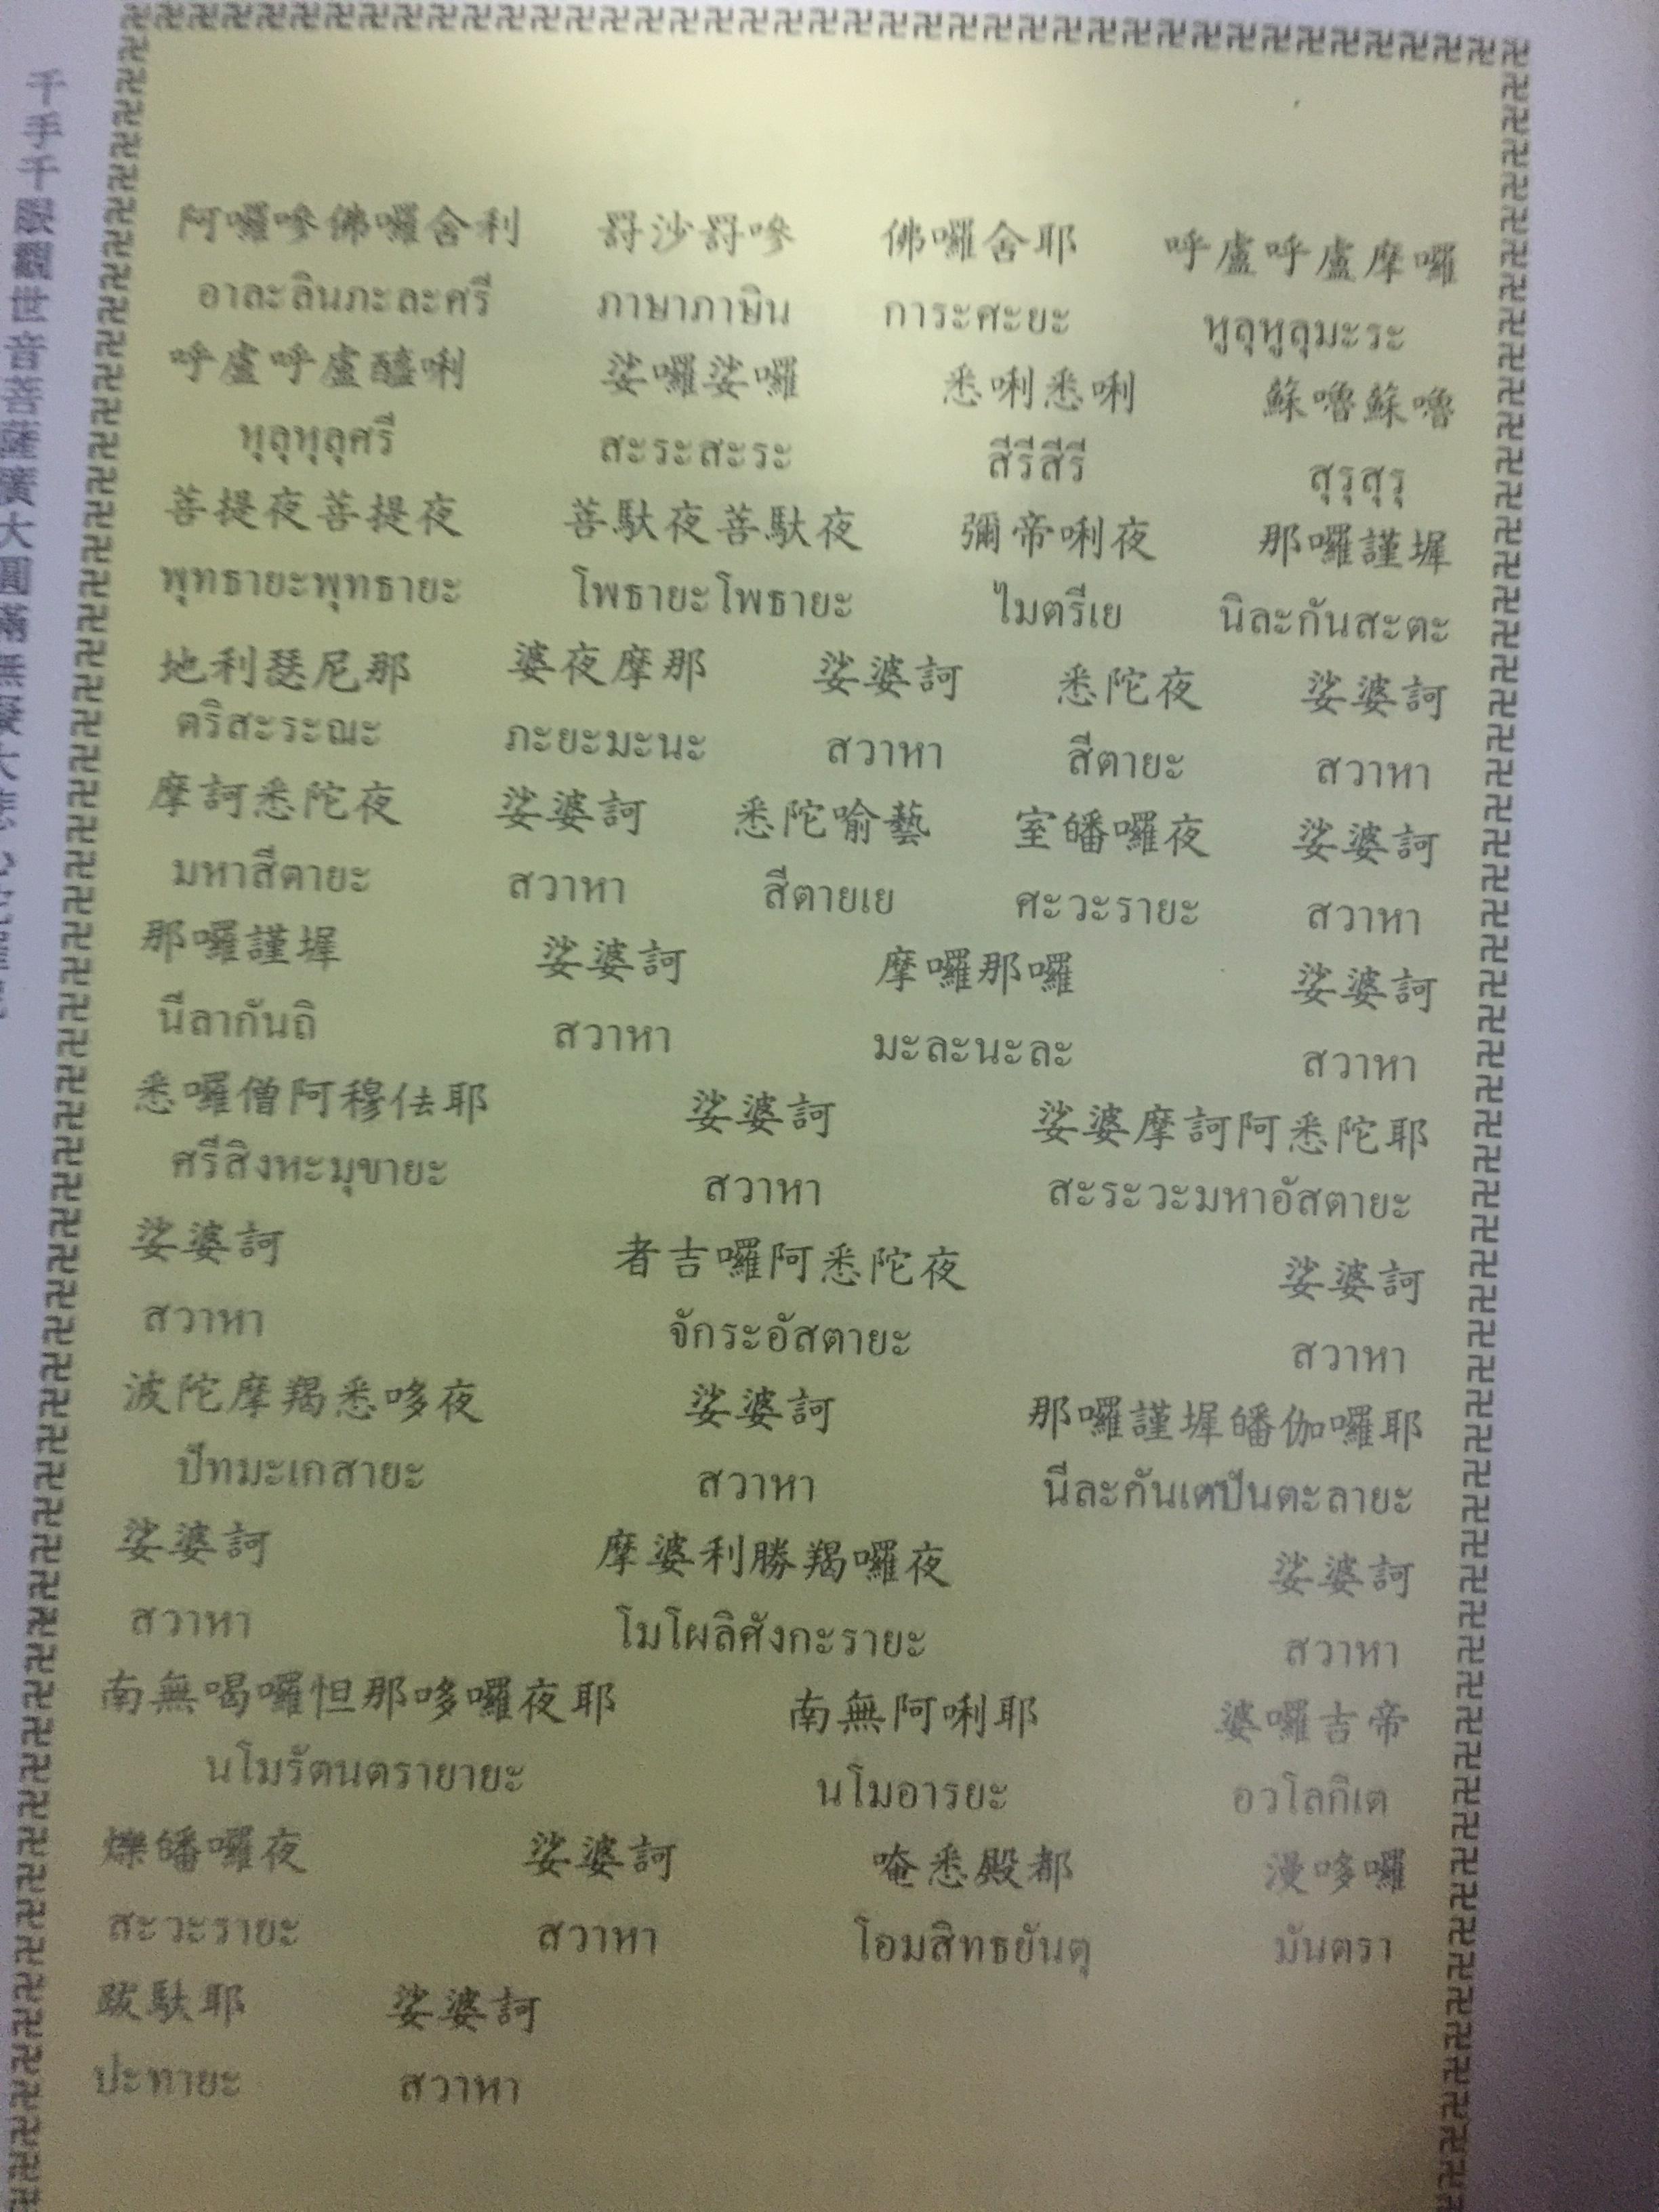 阿囉嘇佛囉舍利 罸沙罸嘇 佛囉舍耶 呼盧呼盧摩囉
อาละลินภะละศรี ภาษาภาษิน การะศะยะ หูลุหูลุมะระ
呼盧呼盧醯唎 娑囉娑囉 悉唎悉唎 蘇嚕蘇嚕
หุลุหุลุศรี สะระสะระ สีรีสีรี สุรุสุรุ
菩提夜菩提夜 菩馱夜菩馱夜 彌帝唎夜 那囉謹墀
พุทธายะพุทธายะ โพธายะโพธายะ ไมตรีเย นิละกันสะตะ
地利瑟尼那 婆夜摩那 娑婆訶 悉陀夜 娑婆訶
ตริสะระณะ ภะยะมะนะ สวาหา สีตายะ สวาหา
摩訶悉陀夜 娑婆訶 悉陀喻藝 室皤囉夜 娑婆訶
มหาสีตายะ สวาหา สีตายเย ศะวะรายะ สวาหา
那囉謹墀 娑婆訶 摩囉那囉 娑婆訶
นีลากันถิ สวาหา มะละนะละ สวาหา
悉囉僧阿穆佉耶 娑婆訶 娑婆摩訶阿悉陀耶
ศรีสิงหะมุขายะ สวาหา สะระวะมหาอัสตายะ
娑婆訶 者吉囉阿悉陀夜 娑婆訶
สวาหา จักระอัสตายะ สวาหา
波陀摩羯悉哆夜 娑婆訶 那囉謹墀皤伽囉耶
ปัทมะเกสายะ สวาหา นีละกันเตปันตะลายะ
娑婆訶 摩婆利勝羯囉夜 娑婆訶
สวาหา โมโผลิศังกะรายะ สวาหา
南無喝囉怛那哆囉夜耶 南無阿唎耶 婆囉吉帝
นโมรัตนตรายายะ นโมอารยะ อวโลกิเต
爍皤囉夜 娑婆訶 唵悉殿都 漫哆囉
สะวะรายะ สวาหา โอมสิทธยันตุ มันตรา
跋馱耶 娑婆訶
ปะทายะ สวาหา